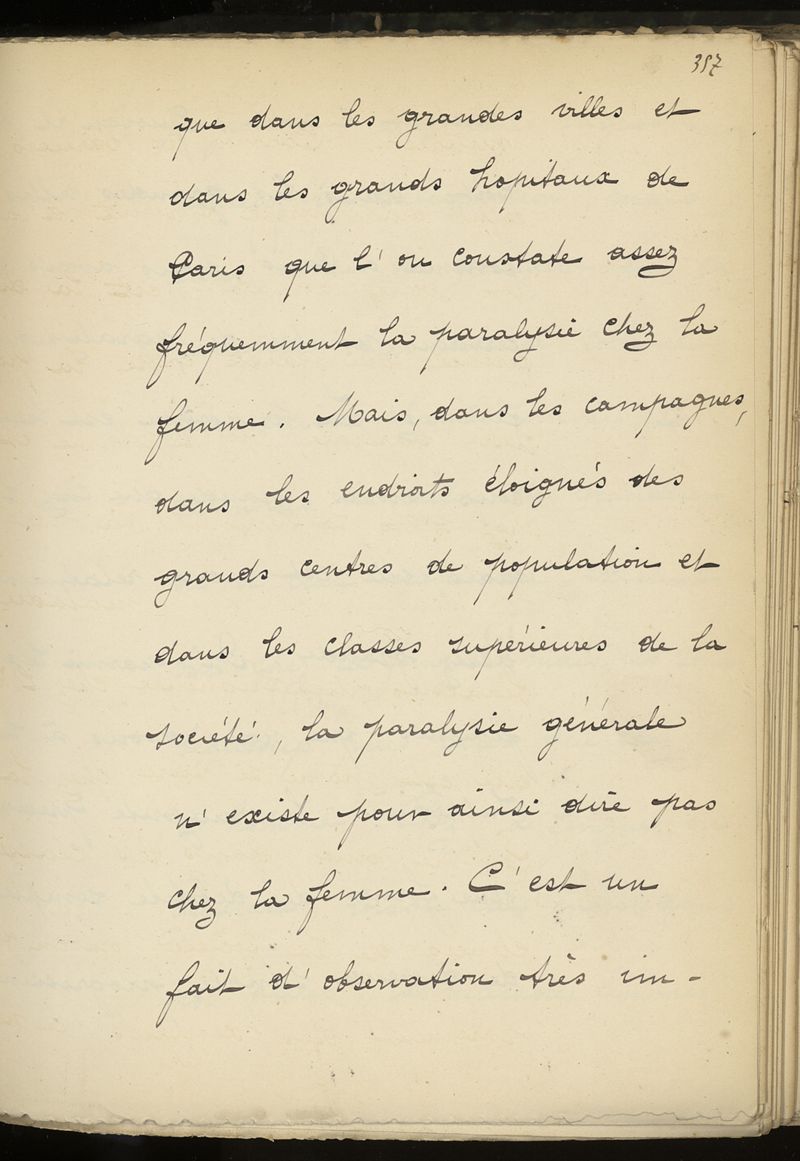 357
que dans les grandes villes et
dans les grands hopitaux de
Paris que l'on constate assez
fréquemment la paralysie chez la
femme. Mais, dans les campagnes,
dans les endroits éloignés des
grands centres de population et
dans les classes supérieures de la
société, la paralysie générale
n'existe pour ainsi dire pas
chez la femme. C'est un
fait d'observation très im-